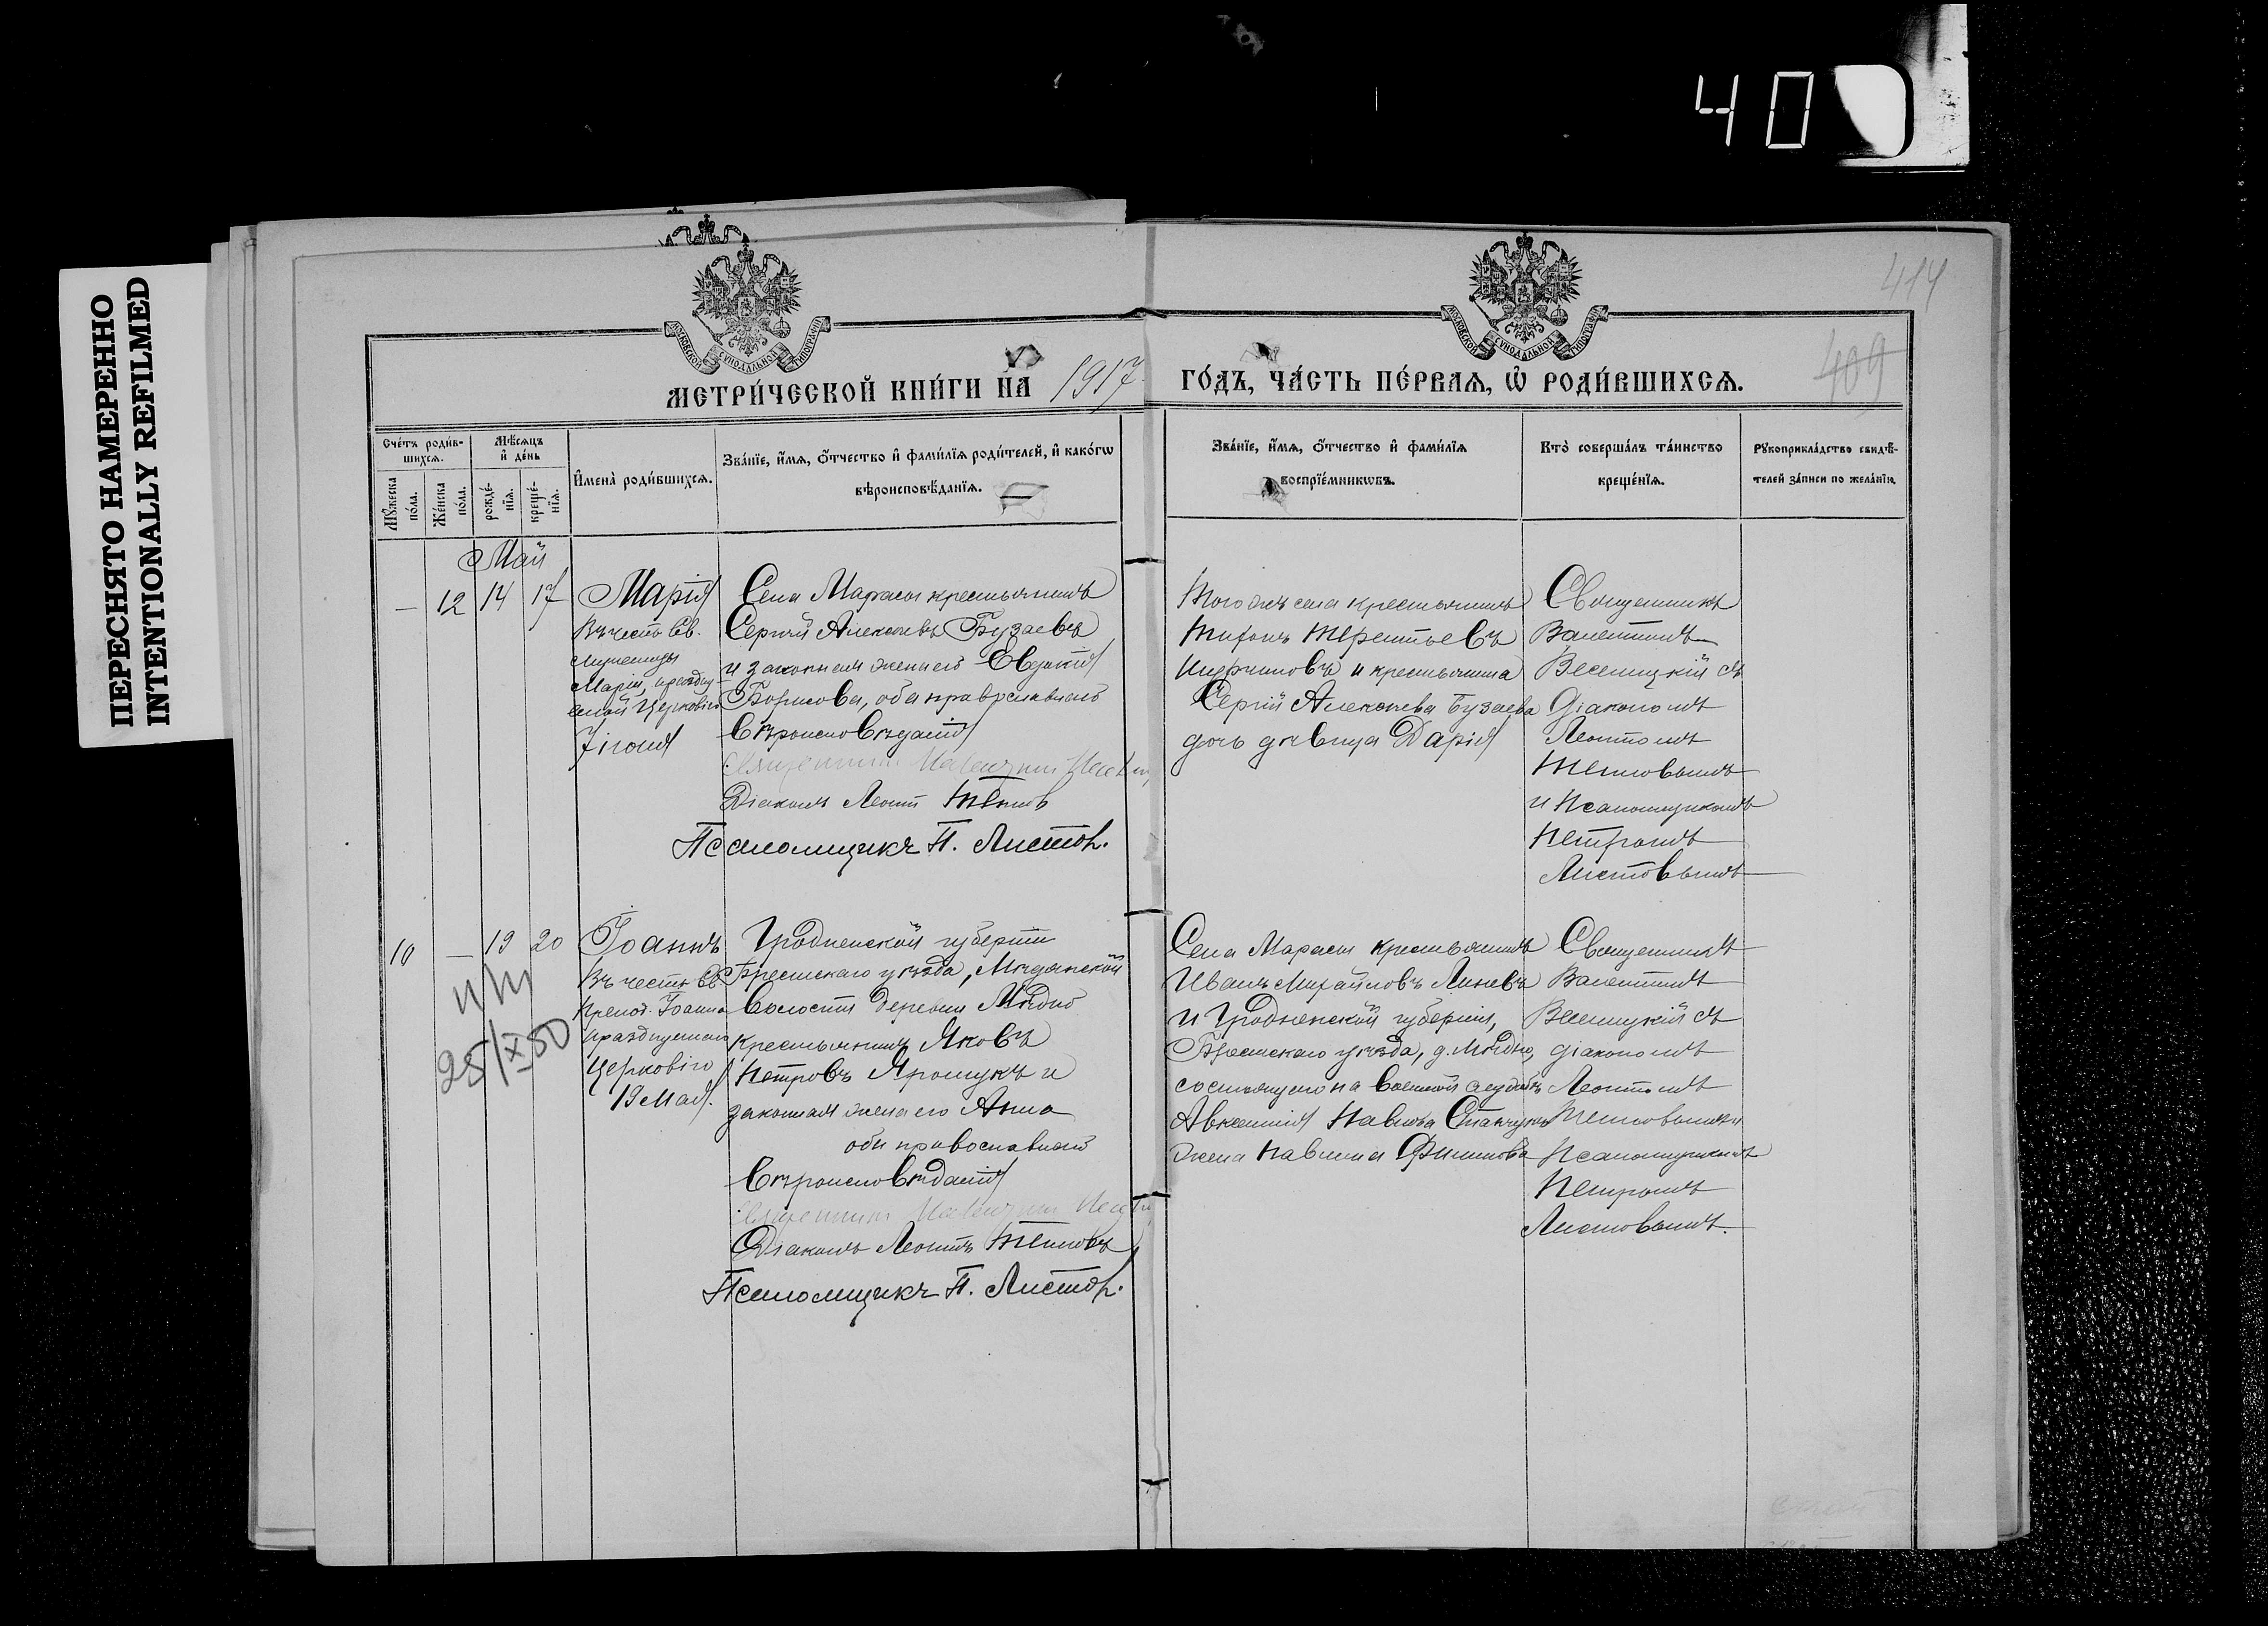 40
ПЕРЕСНЯТО НАМЕРЕННО
INTENTIONALLY REFILMED
414
409
МОСКОВСКОЙ СѴНОДАЛЬНОЙ ТИПОГРАФІИ
МОСКОВСКОЙ СѴНОДАЛЬНОЙ ТИПОГРАФІИ
МЕТРИ́ЧЕСКОЙ КНИ́ГИ НА 1917
ГО́ДЪ, ЧА́СТЬ ПЕ́РВАЯ, Ѡ РОДИ́ВШИХСЯ.
Сче́тъ роди́в-
шихся.
Мѣ́сяцъ
и҆ де́нь
Мꙋ́жеска
по́ла.
Же́нска
по́ла.
рожде́-
нїя.
креще́-
нїя.
И҆мена̀ роди́вшихся.
Зва́нїе, и҆́мя, ѻ҆́тчество и҆ фами́лїя роди́телей, и҆ како́гѡ
вѣроисповѣ́данїя.
Зва́нїе, и҆́мя, ѻ҆́тчество и҆ фами́лїя
воспрїе́мникѡвъ.
Кто̀ соверша́лъ та́инство
креще́нїя.
Рꙋкоприкла́дство свидѣ́-
телей за́писи по жела́нїю.
Май
— 12 14 17
Марія
Въ честь Св.
мученицы
Маріи, праздну-
емой Церковію
7 іюня
Села Марасы крестьянинъ
Сергій Алексѣевъ Бузаевъ
и законная жена его Евдокія
Борисова, оба православнаго
вѣроисповѣданія
Священникъ
Діаконъ Леонтій Теплов
Псаломщикъ П. Листов.
Того же села крестьянинъ
Тихонъ Терентьевъ
и крестьянина
Сергія Алексѣева Бузаева
дочь дѣвица Дарія
Священникъ
Валентинъ
Веселицкій съ
Діакономъ
Леонтіемъ
Тепловымъ
и Псаломщикомъ
Петромъ
Листовымъ
10 — 19 20
25/IX 50
Іоаннъ
Въ честь Св.
Препод. Іоанна
празднуемаго
Церковію
19 Мая.
Гродненской губерніи
Брестскаго уѣзда, Мѣднянской
волости деревни Мѣдно
крестьянинъ Яковъ
Петровъ Ярошукъ и
законная жена его Анна
оба православнаго
вѣроисповѣданія
Священникъ
Діаконъ Леонтій Тепловъ
Псаломщикъ П. Листов.
Села Марасы крестьянинъ
Иванъ Михайловъ Линевъ
и Гродненской губерніи,
Брестскаго уѣзда, д. Мѣдно,
состоящаго на военной службѣ
Авксентія Павлова
жена Павлина Филиппова
Священникъ
Валентинъ
Веселицкій съ
діакономъ
Леонтіемъ
Тепловымъ и
Псаломщикомъ
Петромъ
Листовымъ.